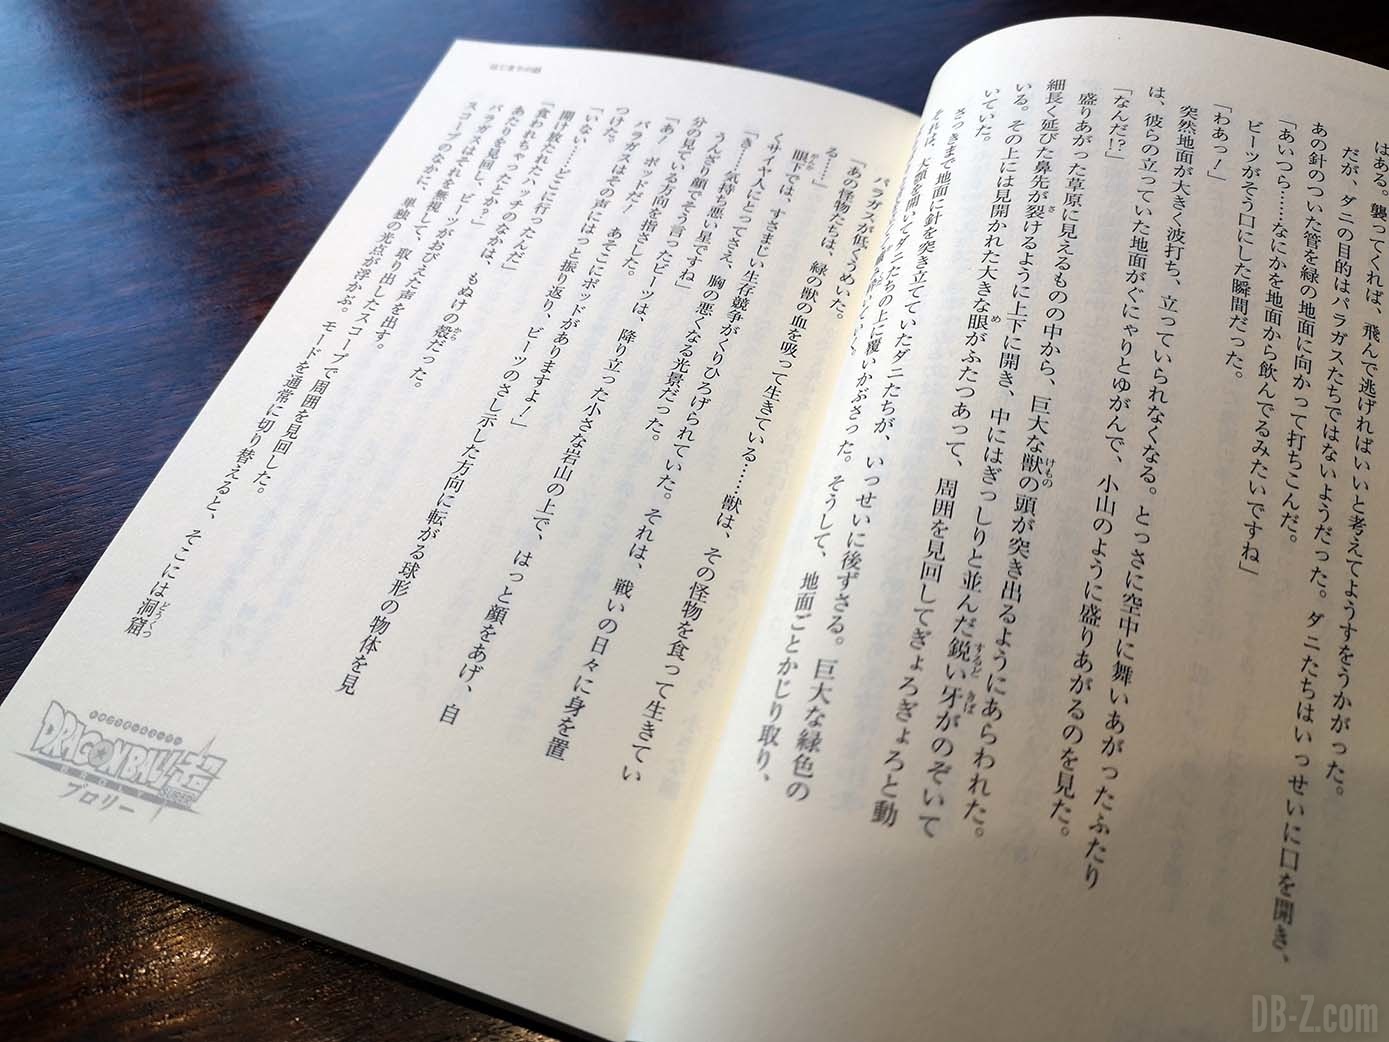 はある。襲ってくれば、飛んで逃げればいいと考えてようすをうかがった。
だが、ダニの目的はパラガスたちではないようだった。ダニたちはいっせいに口を開き、
あの針のついた管を緑の地面に向かって打ちこんだ。
「あいつら……なにかを地面から飲んでるみたいですね」
ビーツがそう口にした瞬間だった。
「わあっ！」
突然地面が大きく波打ち、立っていられなくなる。とっさに空中に舞いあがったふたり
は、彼らの立っていた地面がぐにゃりとゆがんで、小山のように盛りあがるのを見た。
「なんだ!?」
盛りあがった草原に見えるものの中から、巨大な獣の頭が突き出るようにあらわれた。
細長く延びた鼻先が裂けるように上下に開き、中にはぎっしりと並んだ鋭い牙がのぞいて
いる。その上には見開かれた大きな眼がふたつあって、周囲を見回してぎょろぎょろと動
いていた。
さっきまで地面に針を突き立てていたダニたちが、いっせいに後ずさる。巨大な緑色の
それは、大顎を開いてダニたちの上に覆いかぶさった。そうして、地面ごとかじり取り、
パラガスが低くうめいた。
「あの怪物たちは、緑の獣の血を吸って生きている……獣は、その怪物を食って生きてい
る……」
眼下では、すさまじい生存競争がくりひろげられていた。それは、戦いの日々に身を置
くサイヤ人にとってさえ、胸の悪くなる光景だった。
「き……気持ち悪い星ですね」
うんざり顔でそう言ったビーツは、降り立った小さな岩山の上で、はっと顔をあげ、自
分の見ている方向を指さした。
「あ！　ポッドだ！　あそこにポッドがありますよ！」
パラガスはその声にはっと振り返り、ビーツのさし示した方向に転がる球形の物体を見
つけた。
開け放たれたハッチのなかは、もぬけの殻だった。
「いない……どこに行ったんだ」
「食われちゃったとか？」
あたりを見回し、ビーツがおびえた声を出す。
パラガスはそれを無視して、取り出したスコープで周囲を見回した。
スコープのなかに、単独の光点が浮かぶ。モードを通常に切り替えると、そこには洞窟
はじまりの話
DRAGONBALL超
SUPER
BROLY
ブロリー
DB-Z.com